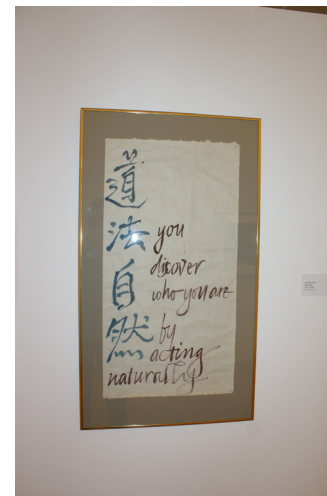 道法自然
you
discover
who you are
by
acting
naturally